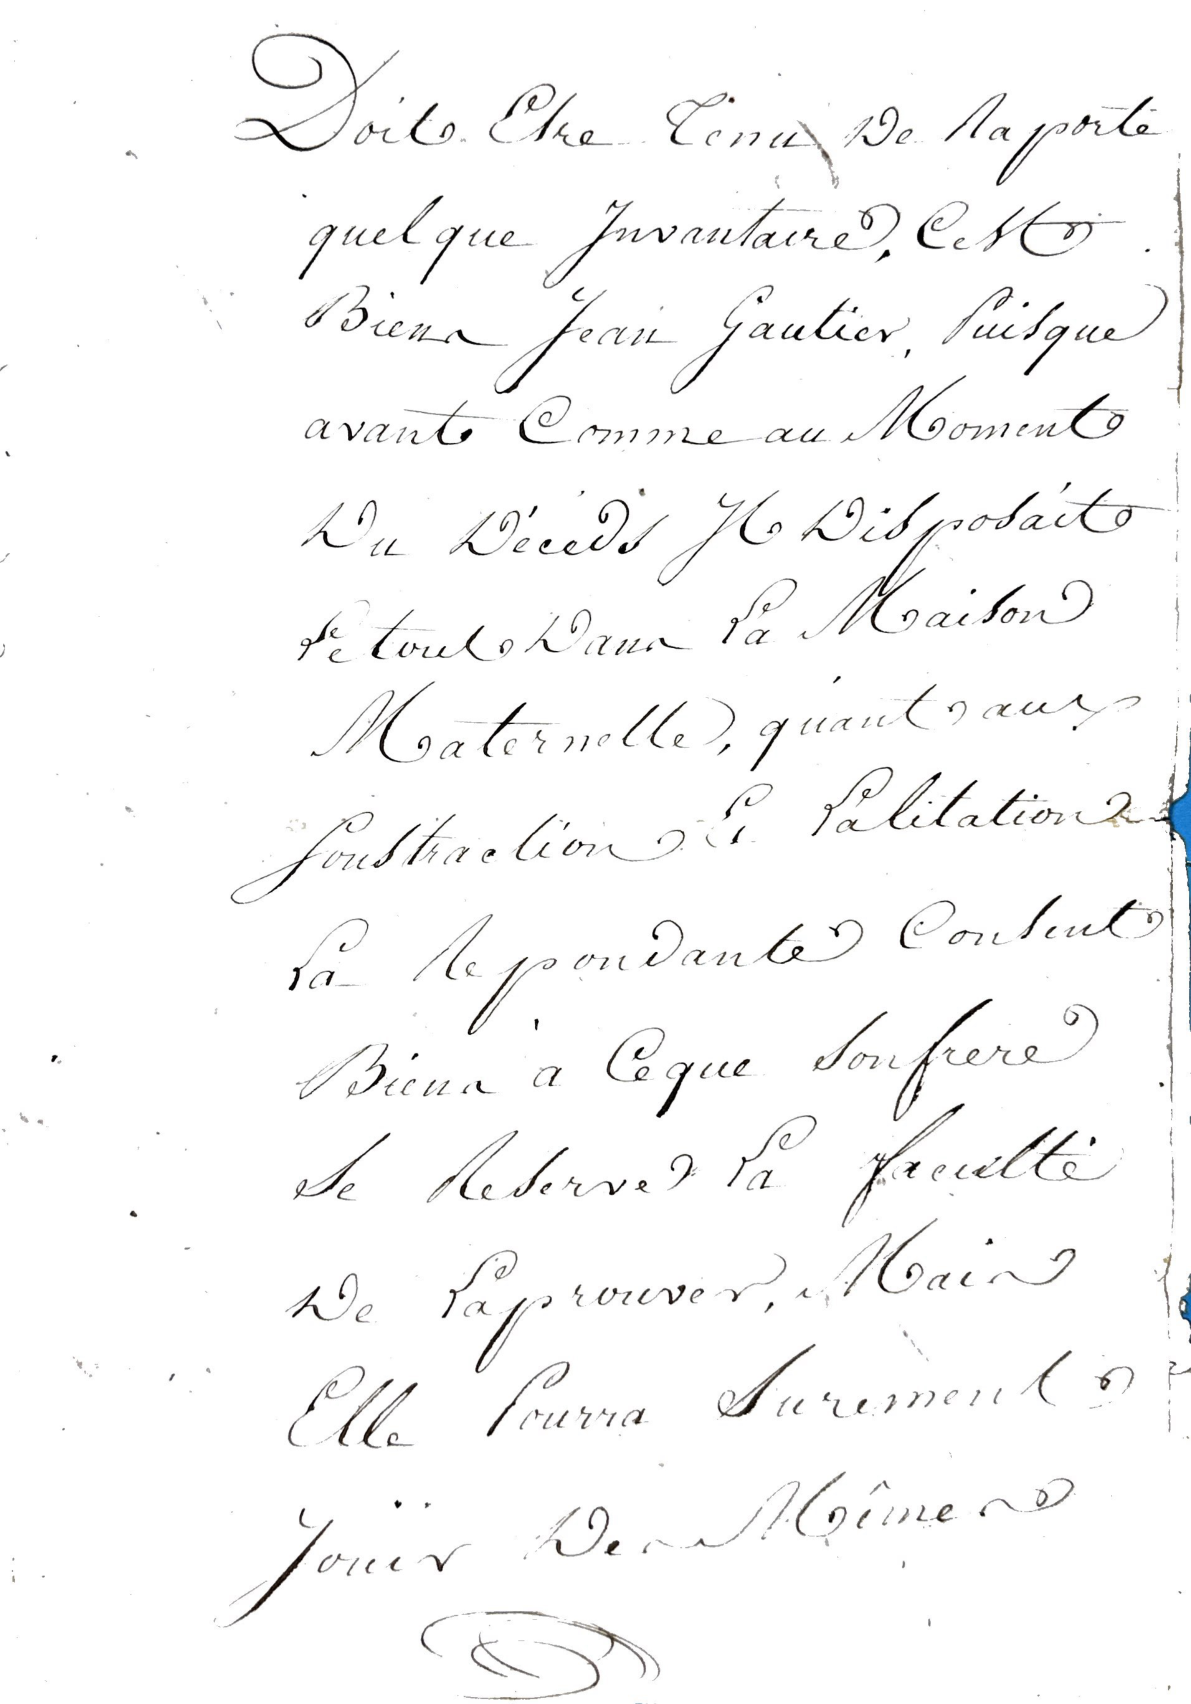 Doit Etre Tenu De Raporté
quelque Invantaire, Cest
Biens Jean Gautier, Puisque
avant Comme au Moment
Du Décéds Il Disposáit
Le tout Dans La Maison
Maternelle, quant aux
Soustraction Et Lalitation
La Repondante Consent
Biens à Ceque Son frere
Se Reserve La faculté
De Laprouver, Mais
Elle Pourra Surement
Jouir De Même